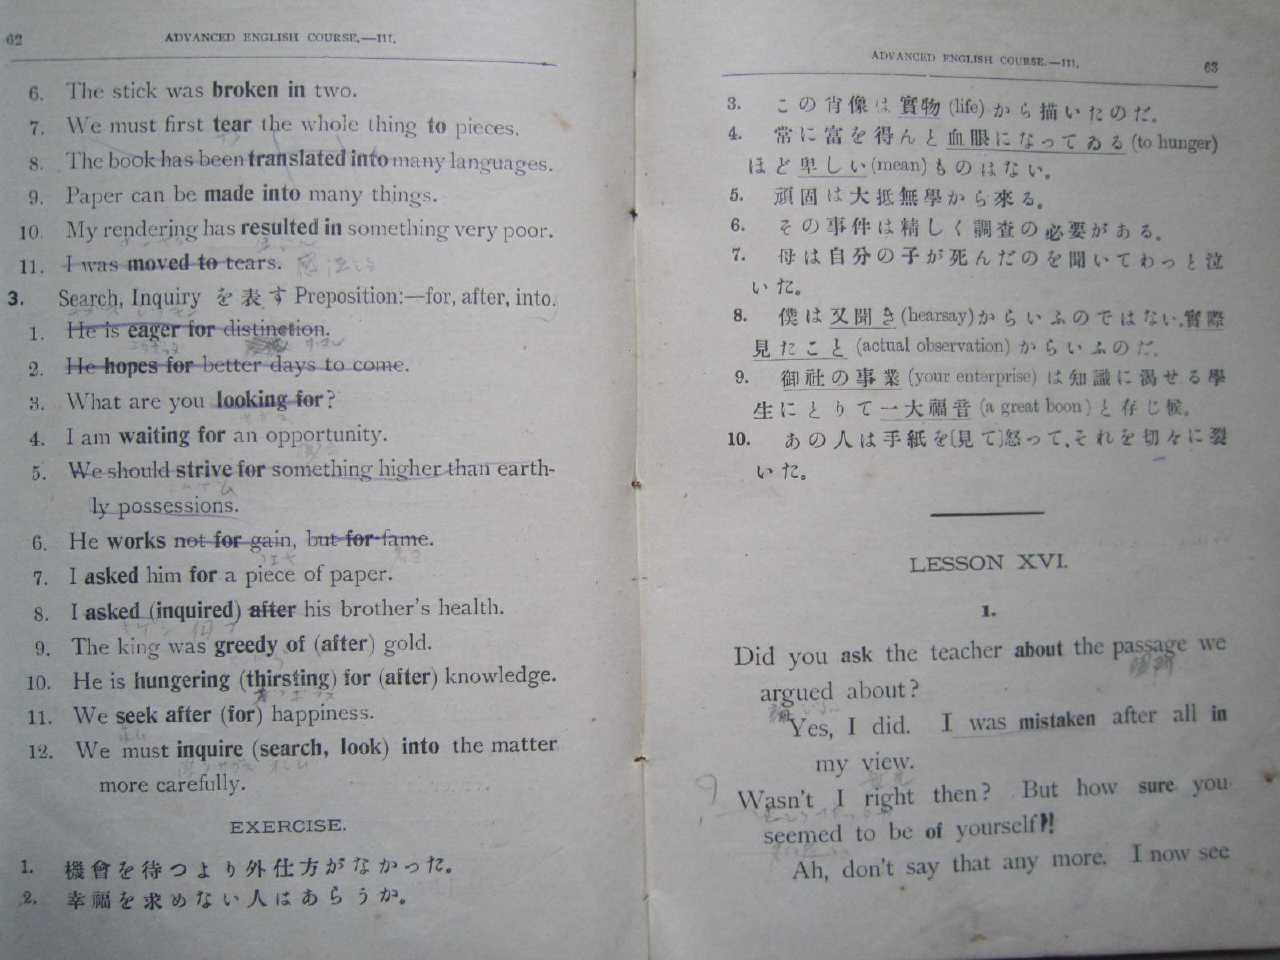 62
ADVANCED ENGLISH COURSE.—III.
6. The stick was broken in two.
7. We must first tear the whole thing to pieces.
8. The book has been translated into many languages.
9. Paper can be made into many things.
10. My rendering has resulted in something very poor.
11. I was moved to tears.
3. Search, Inquiry を表す Preposition:—for, after, into.
1. He is eager for distinction.
2. He hopes for better days to come.
3. What are you looking for?
4. I am waiting for an opportunity.
5. We should strive for something higher than earth-
ly possessions.
6. He works not for gain, but for fame.
7. I asked him for a piece of paper.
8. I asked (inquired) after his brother's health.
9. The king was greedy of (after) gold.
10. He is hungering (thirsting) for (after) knowledge.
11. We seek after (for) happiness.
12. We must inquire (search, look) into the matter
more carefully.
EXERCISE.
1. 機會を待つより外仕方がなかった。
2. 幸福を求めない人はあらうか。
ADVANCED ENGLISH COURSE.—III.
63
3. この肖像は實物 (life) から描いたのだ。
4. 常に富を得んと血眼になってゐる (to hunger)
ほど卑しい (mean) ものはない。
5. 頑固は大抵無學から來る。
6. その事件は精しく調査の必要がある。
7. 母は自分の子が死んだのを聞いてわっと泣
いた。
8. 僕は又聞き (hearsay) からいふのではない、實際
見たこと (actual observation) からいふのだ。
9. 御社の事業 (your enterprise) は知識に渇せる學
生にとりて一大福音 (a great boon) と存じ候。
10. あの人は手紙を〔見て〕怒って、それを切々に裂
いた。
LESSON XVI.
1.
Did you ask the teacher about the passage we
argued about?
Yes, I did. I was mistaken after all in
my view.
Wasn't I right then? But how sure you
seemed to be of yourself!
Ah, don't say that any more. I now see